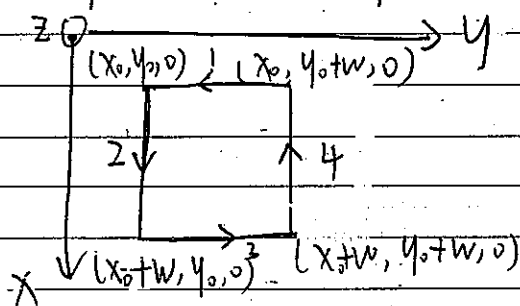 Z y
(x₀, y₀, 0) 1 (x₀, y₀+w, 0)
2 4
x (x₀+w, y₀, 0) 3 (x₀+w, y₀+w, 0)